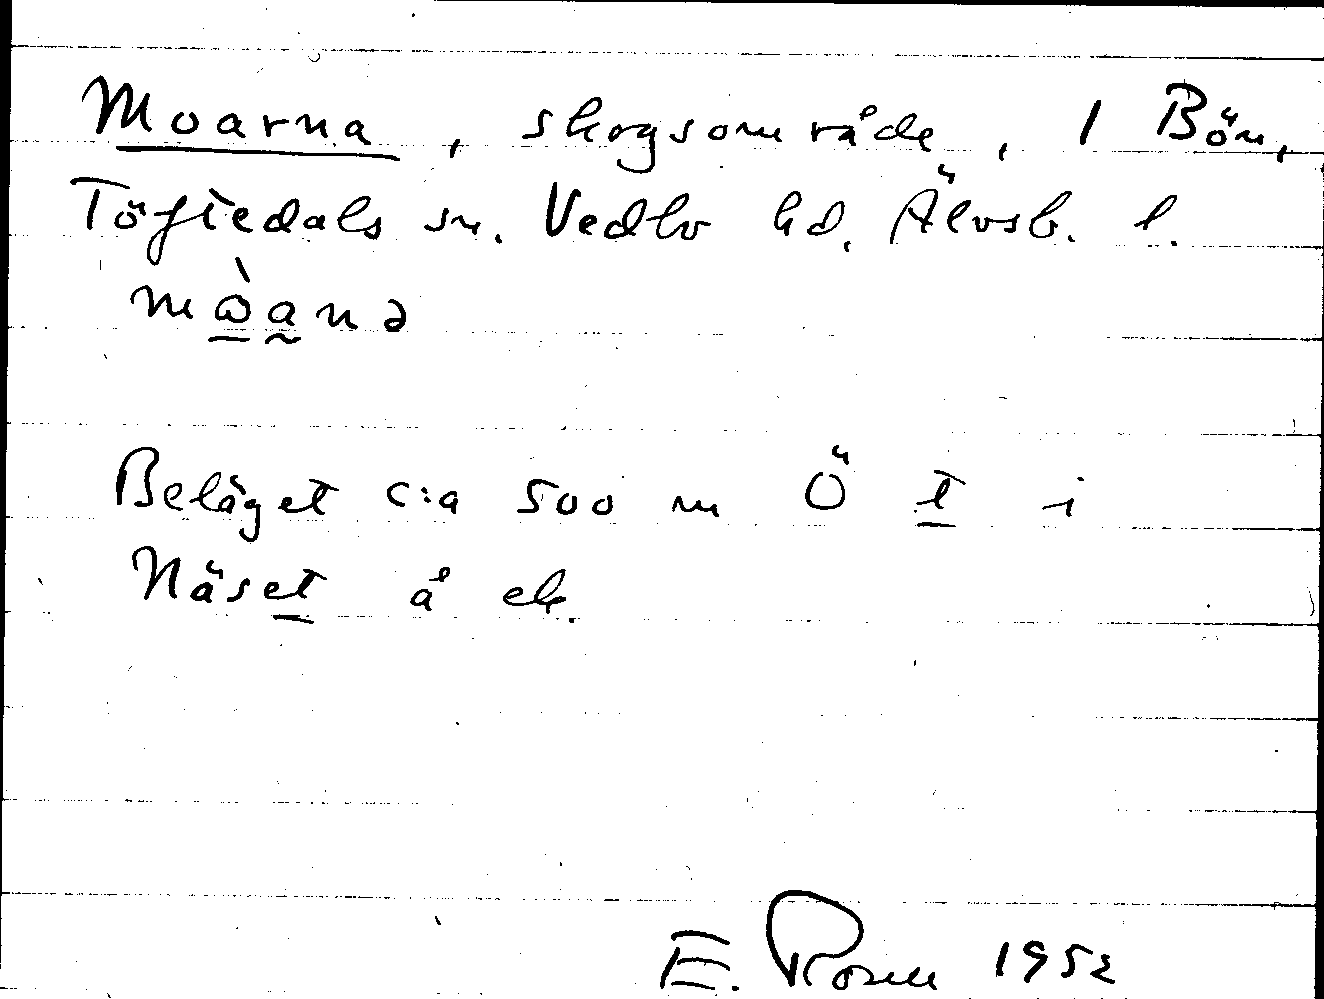 Moarna, skogsområde, 1 Bön,
Töftedals sn. Vedbo hd. Älvsb. l.
mẁana
Beläget c:a 500 m Ö t i
Näset å ek.
E. Rosell 1952